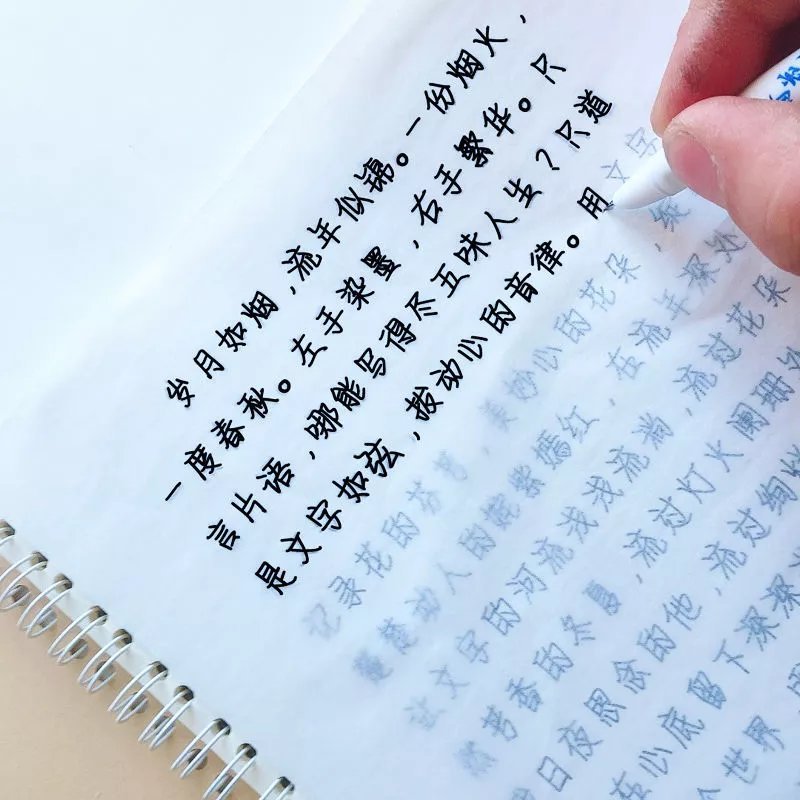 岁月如烟,流年似锦。一份烟火,
一度春秋。左手染墨,右手繁华。只
言片语,哪能写得尽五味人生?只道
是文字如弦,拨动心的音律。用文字
记录花的芬芳,美妙心的花朵,绽
动人的姹紫嫣红,在流年深处
让文字的河流浅浅流淌,流过花朵
苦香的冬夏,流过灯火阑珊
日夜思念的他,流过绚
在心底留下深深
世界